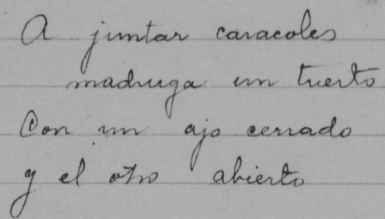 A juntar caracoles
madruga un tuerto
Con un ajo cerrado
y el otro abierto